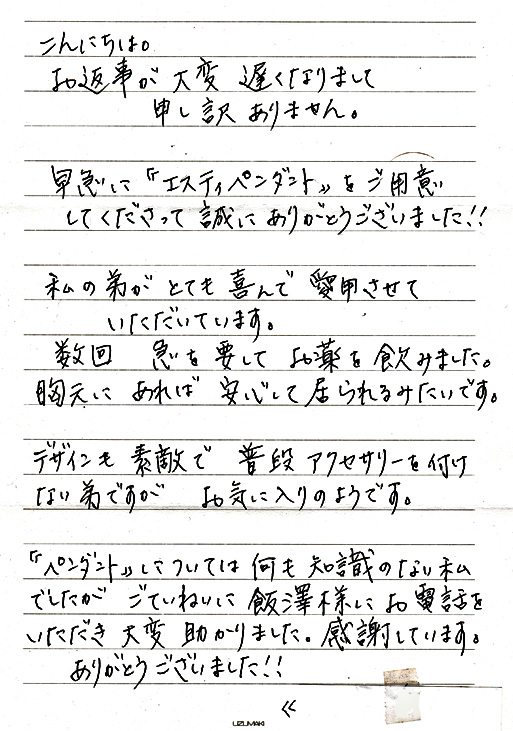 こんにちは。
お返事が 大変 遅くなりまして
申し訳ありません。
早急に『エスティペンダント』をご用意
してくださって 誠に ありがとうございました!!
私の弟が とても 喜んで 愛用させて
いただいています。
数回 急を要して お薬を飲みました。
胸元に あれば 安心して居られるみたいです。
デザインも 素敵で 普段 アクセサリーを付け
ない弟ですが お気に入りのようです。
『ペンダント』については 何も 知識のない私
でしたが ごていねいに 飯澤様に お電話を
いただき 大変 助かりました。感謝しています。
ありがとうございました!!
UZUMAKI